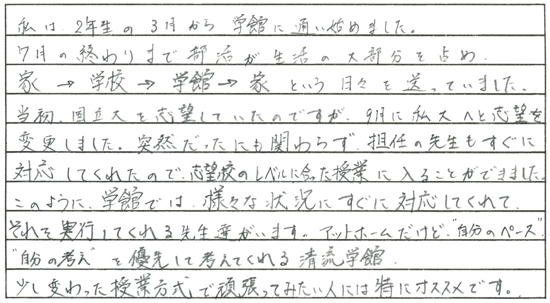 私は、2年生の3月から学館に通い始めました。
7月の終わりまで部活が生活の大部分を占め、
家→学校→学館→家という日々を送っていました。
当初、国立大を志望していたのですが、9月に私大へと志望を
変更しました。突然だったにも関わらず、担任の先生もすぐに
対応してくれたので、志望校のレベルに合った授業に入ることができました。
このように、学館では、様々な状況にすぐに対応してくれて、
それを実行してくれる先生達がいます。アットホームだけど、"自分のペース"
"自分の考え"を優先して考えてくれる清流学館。
少し変わった授業方式で頑張ってみたい人には特にオススメです。